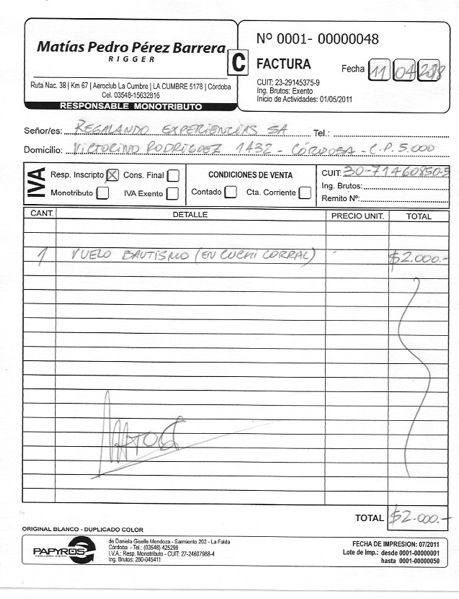 Matías Pedro Pérez Barrera
RIGGER
Ruta Nac. 38 | Km 67 | Aeroclub La Cumbre | LA CUMBRE 5178 | Córdoba
Cel. 03548-15632816
RESPONSABLE MONOTRIBUTO
C
Nº 0001- 00000048
FACTURA
Fecha 11 04
CUIT: 23-29145375-9
Ing. Brutos: Exento
Inicio de Actividades: 01/05/2011
Señor/es: REGALANDO EXPERIENCIAS SA Tel.:
Domicilio: VICTORINO RODRIGUEZ 1432 - CÓRDOBA - C.P. 5.000
IVA
Resp. Inscripto X Cons. Final
Monotributo IVA Exento
CONDICIONES DE VENTA
Contado Cta. Corriente
CUIT: 30-71460850-5
Ing. Brutos:
Remito Nº:
CANT. DETALLE PRECIO UNIT. TOTAL
1 VUELO BAUTISMO (EN CUCHI CORRAL) $2.000.-
TOTAL $2.000.-
ORIGINAL BLANCO - DUPLICADO COLOR
PAPYROS
de Daniela Giselle Mendoza - Sarmiento 202 - La Falda
Córdoba - Tel.: (03548) 425299
I.V.A.: Resp. Monotributo - CUIT: 27-24607988-4
Ing. Brutos: 280-045411
FECHA DE IMPRESION: 07/2011
Lote de Imp.: desde 0001-00000001
hasta 0001-00000050